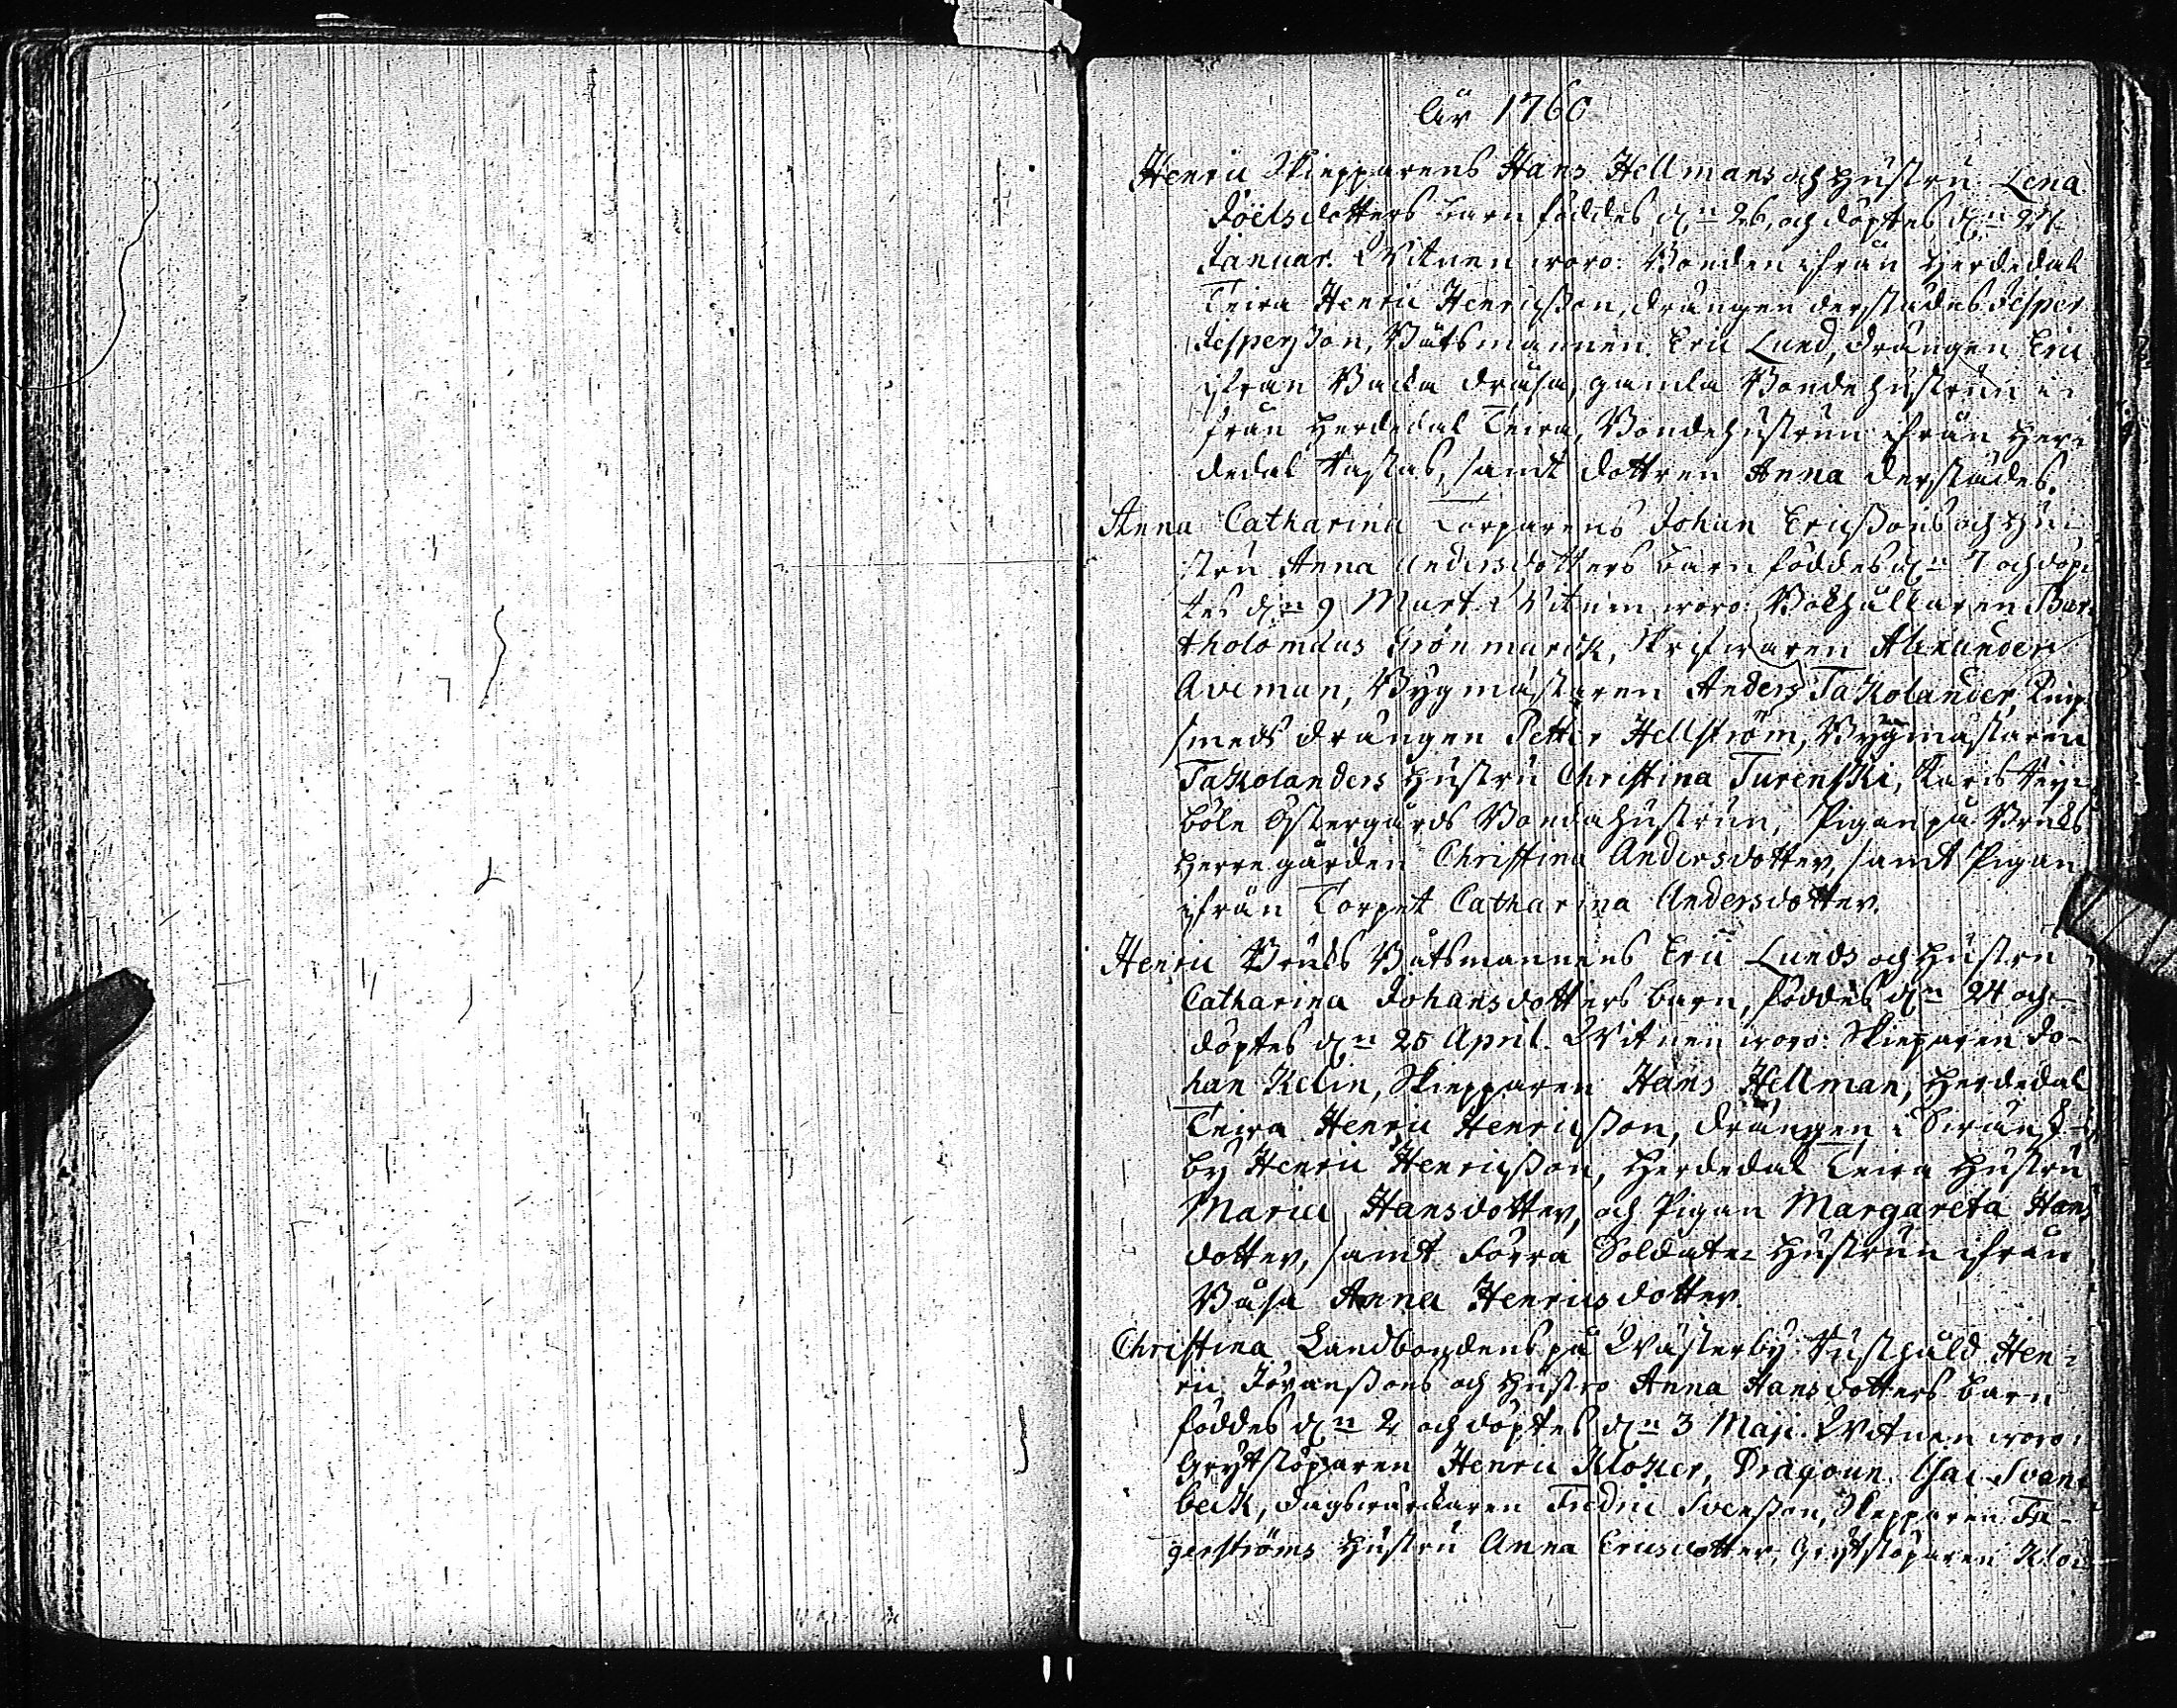 År 1760
Henric Skiepparens Hans Hellmans och hustru Lena
Joëlsdotters barn föddes dn 26, och döptes dn 27
Januar. Witnen woro: Bonden ifrån Herdedal
Teira Henric Henricßon, drängen derstädes Jesper
Jesperßon, Båtsmannen Eric Lund, drängen Eric
ifrån Backa dråsa, gamla Bondehustrun i-
från Herdedal Teira, Bondehustrun ifrån Her-
dedal Kastas, samt dottren Anna derstädes.
Anna Catharina Torparens Johan Ericßons och hu-
stru Anna Andersdotters barn föddes dn 7 och döp-
tes dn 9 Mart. Witnen woro: Bokhållaren Bar-
tholomæus Grönmarck, Skrifwaren Alexander
Aveman, Bygmästaren Anders Takolander,
smeds drängen Petter Hellström, Bygmästaren
Takolanders hustru Christina Turenski, Karis
böle Östergårds Bondahustrun, Pigan på Bruks
Herregården Christina Andersdotter, samt Pigan
ifrån Torpet Catharina Andersdotter.
Henric Bruks Båtsmannens Eric Lunds och hustru
Catharina Johansdotters barn, föddes dn 24 och
döptes dn 25 April. Witnen woro: Skieparen Jo-
han Kelin, Skiepparen Hans Hellman, Herdedal
Teira Henric Henricßon, drängen i Swan
by Henric Henricßon, Herdedal Teira Hustru
Maria Hansdotter, och Pigan Margareta Hans
dotter, samt Förra Soldate- Hustrun ifrån
Båsa Anna Henricsdotter.
Christina Landbondens på Wästerby Rusthåld Hen-
ric Jöranßons och hustro Anna Hansdotters barn
föddes dn 2 och döptes dn 3 Maji. Witnen woro:
Grytstöparen Henric Klocker, Dragoun Isac Svan-
beck, Dagswärckaren Fredric Svenßon, Skepparen Fa-
gerströms Hustru Anna Ericsdotter, Grytstöparen Klo-